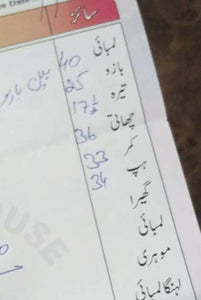 e Date
سائز
لمبائی 40
بازو 25
تیرہ 17½
چھاتی 36
کمر 33
ہپ 34
گھیرا
لمبائی
موہری
لہنگا لمبائی
OUSE